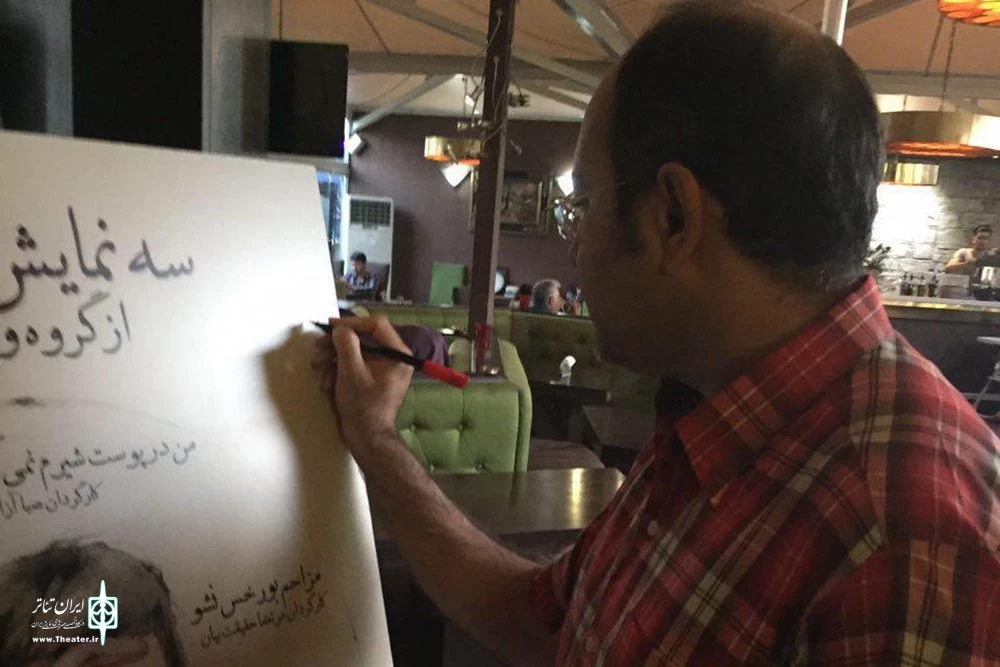 سه نمایش
از گروه و
من در پوست شیرم نمی
کارگردان صبا آرا
مزاحم بورخس نشو
کارگردان مرتضا حقیقت بیان
ایران تئاتر
www.Theater.ir